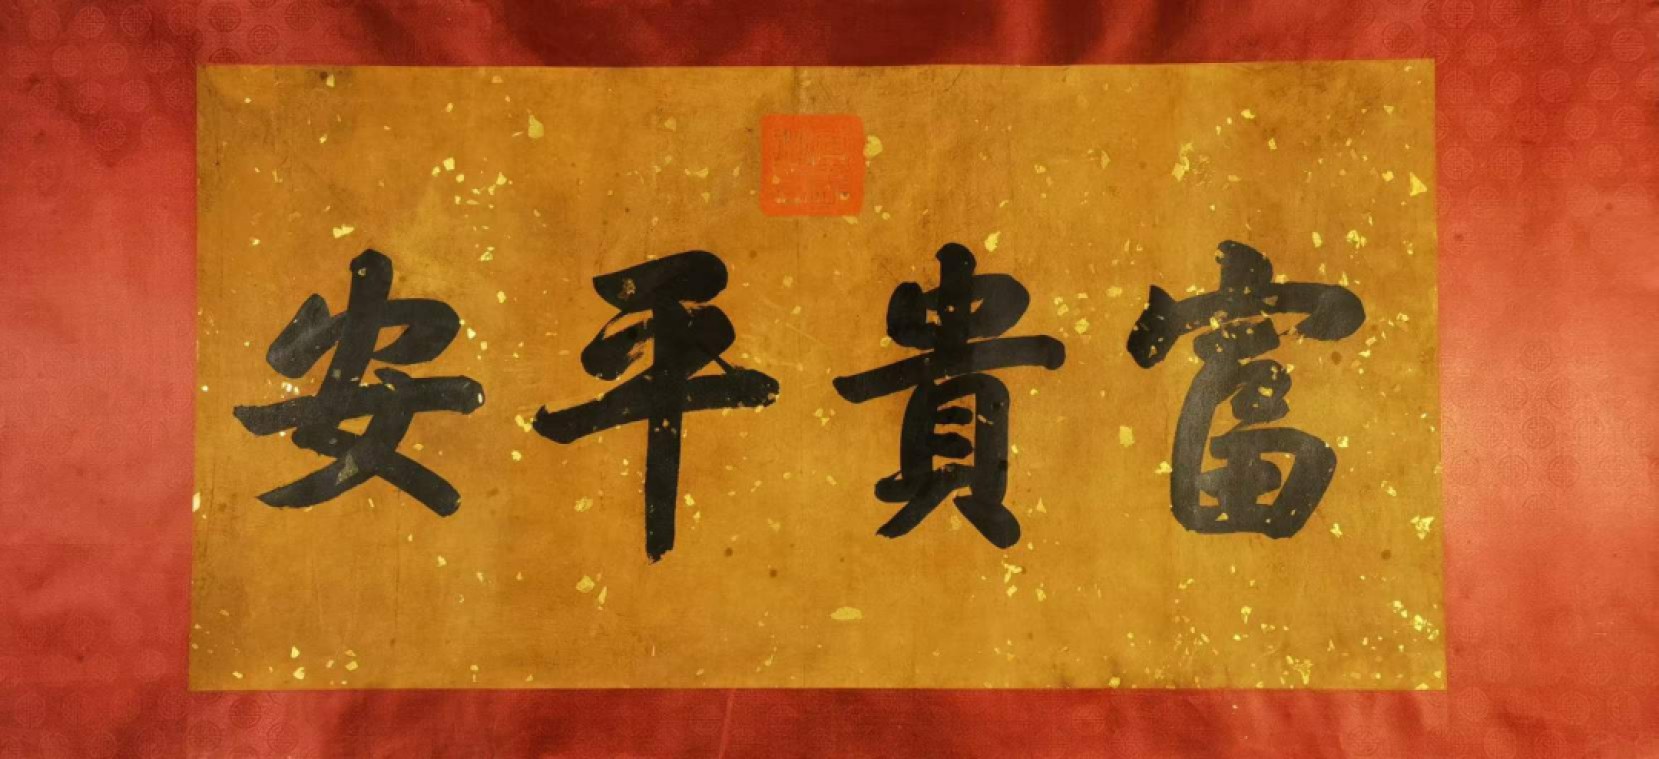 富貴平安